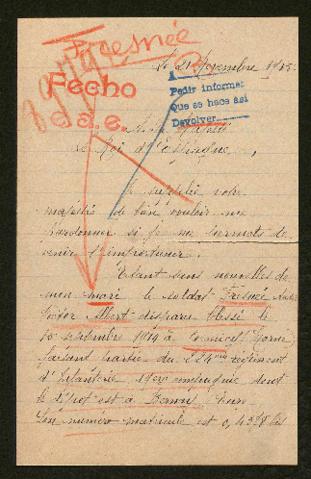 Fresnée
Le 21 Novembre 1915
Fecho
e a e.
Pedir informes
Que se hace así
Devolver
A sa Majesté
Le Roi d'Espagne,
Je supplie votre
majesté de bien vouloir me
pardonner si je me permets de
venir l'importuner.
Etant sans nouvelles de
mon mari le soldat Fresnée
Victor Albert disparu blessé le
15 septembre 1914 à (Marne)
faisant partie du 224me régiment
d'Infanterie 19eme compagnie dont
le dépôt est à Bernay Eure
Son numéro matricule est 0,4378